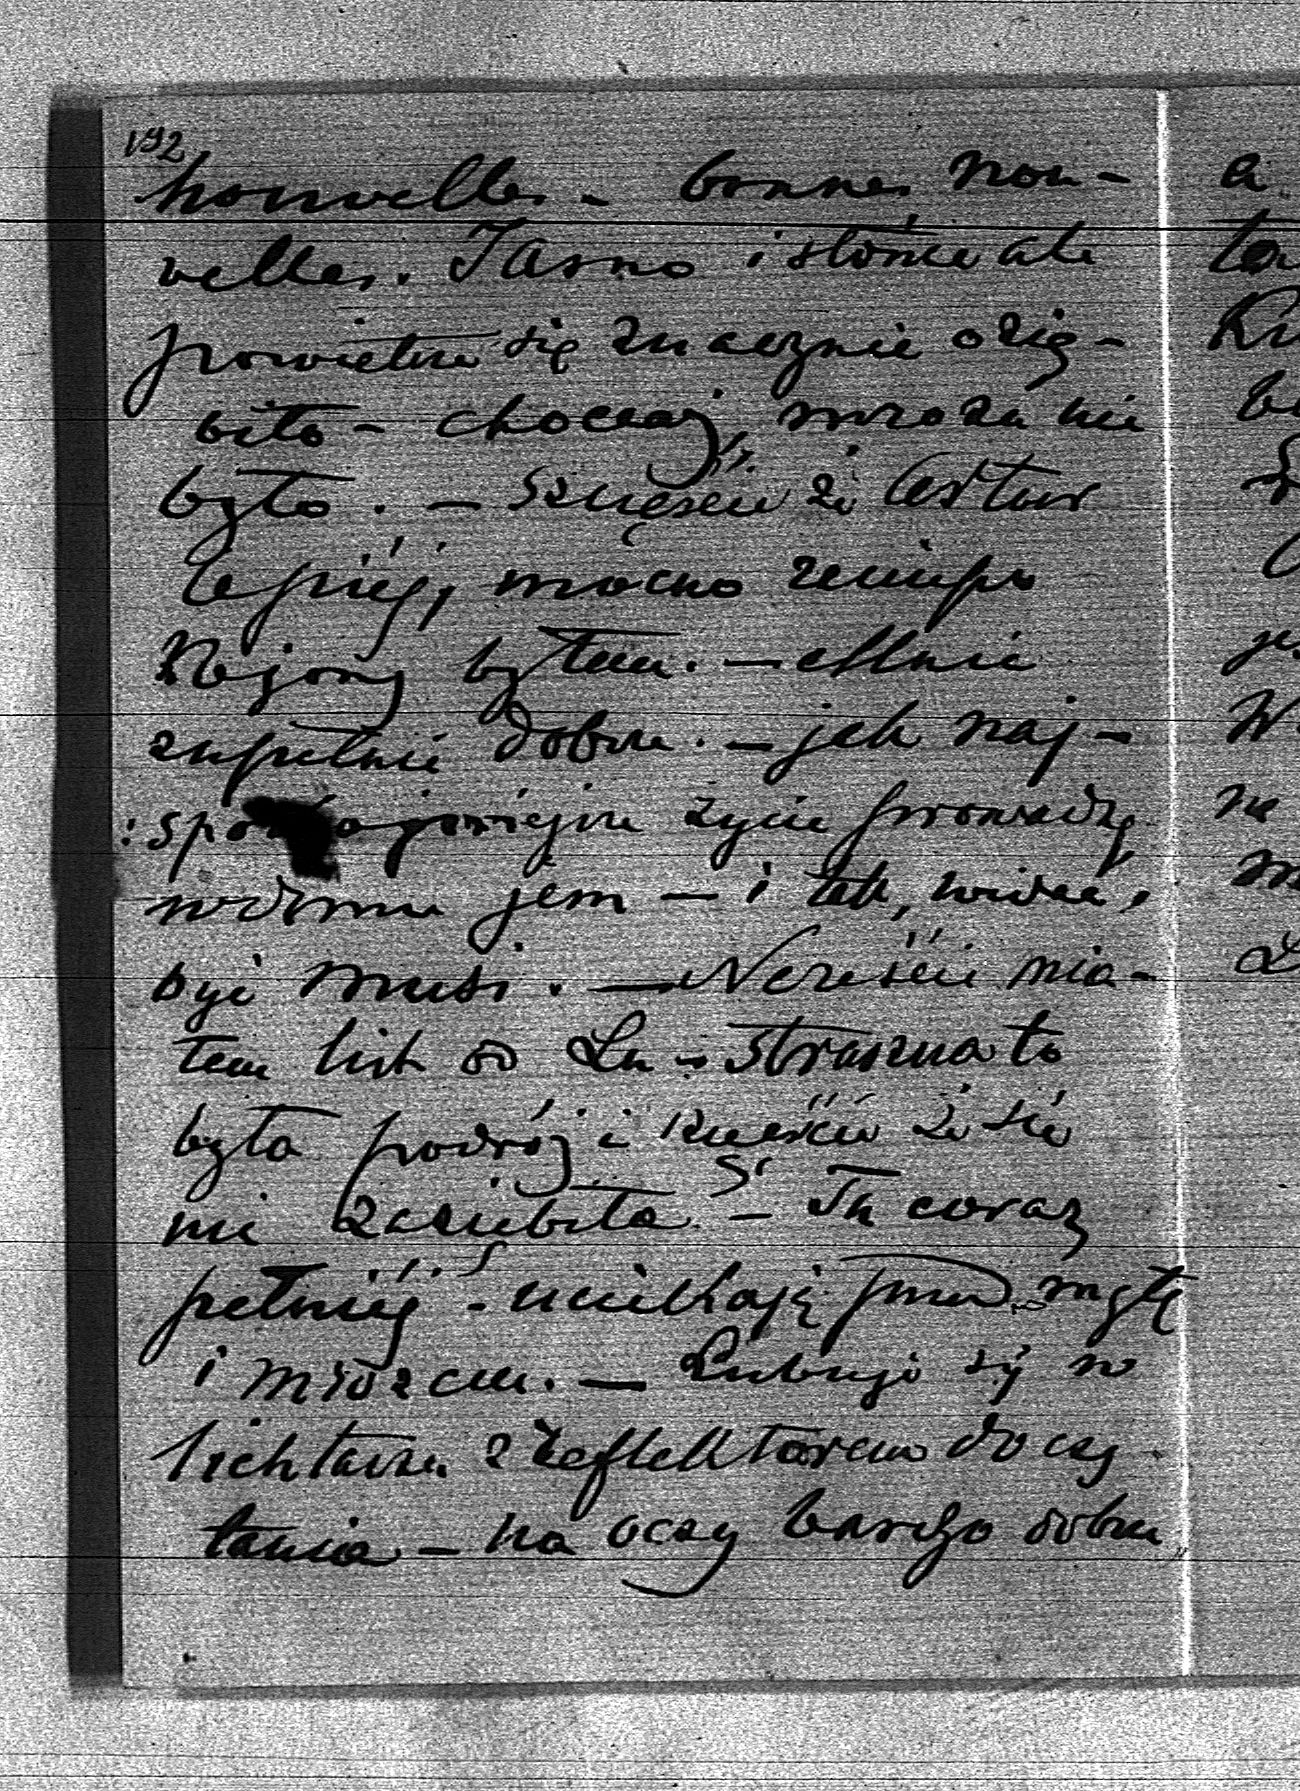 192
nouvelles - bonnes nou-
velles. Jasno i słońce ale
powietrze się znacznie ozię-
biło - chociaż mrozu nie
było. - Szczęście że Artur
lepiéj, mocno zaniepo
kojony byłem. - Mnie
zupełnie dobrze. - jak naj-
spokojniejsze życie prowadzę
w domu jem - i tak, widać,
być musi. - Nareście mia-
łem list od Lu - straszna to
była podróż i szczęście że się
nie zaziębiła - Tu coraz
pełniéj - uciekają przed mgłą
i mrozem. - Lubuję się w
lichtarzu z reflektorem do czy
tania - na oczy bardzo dobre